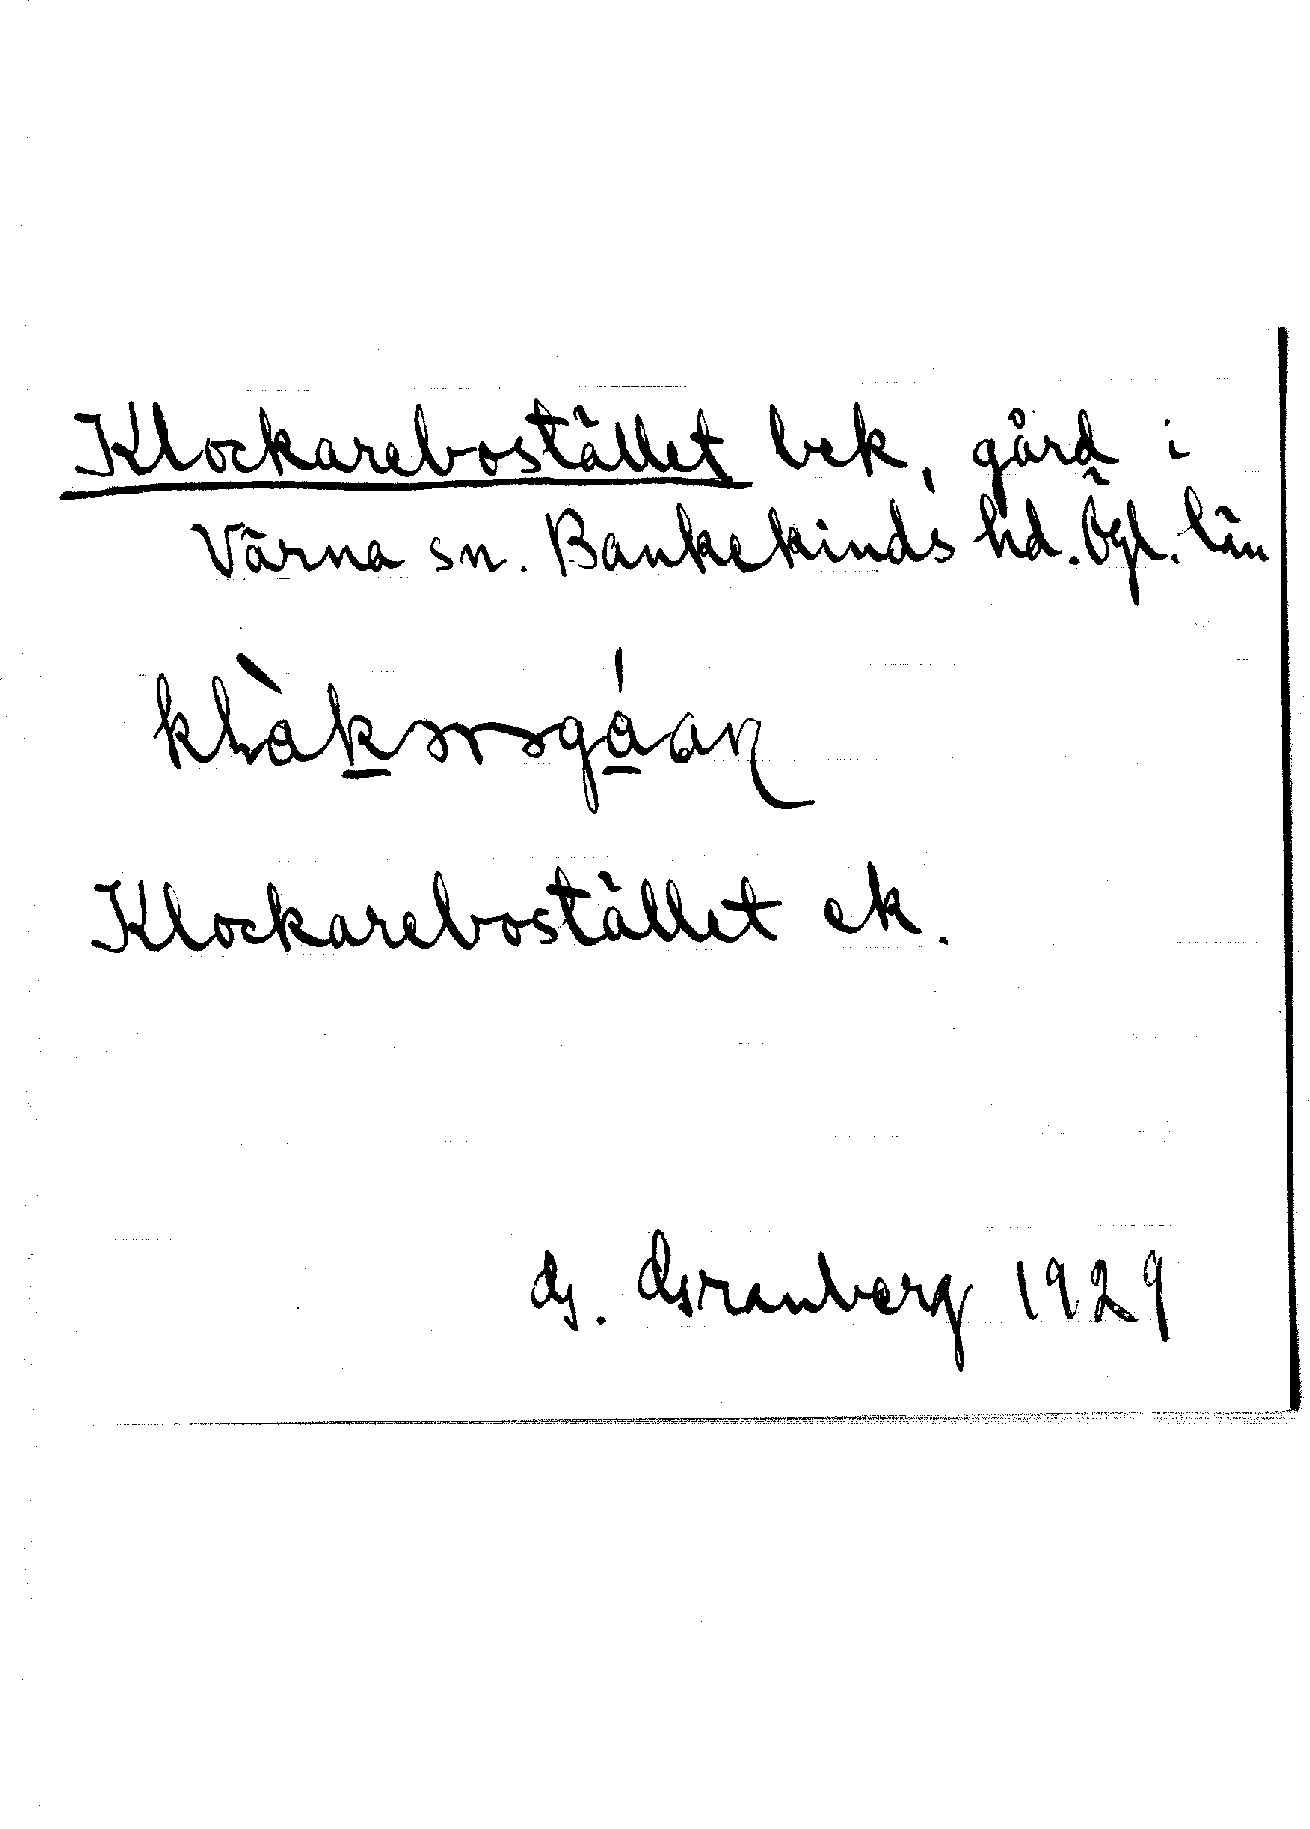 Klockarebostället bek, gård i
Värna sn. Bankekinds hd. Ögl. län
Klockarebostället ek.
G. Granberg 1929